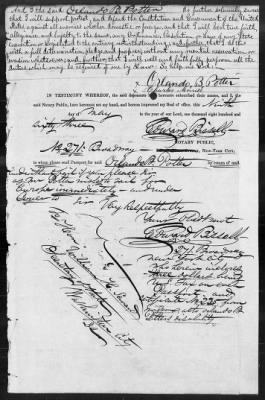 And I the said Orlando B. Potter do further solemnly swear
that I will support, protect, and defend the Constitution and Government of the United
States against all enemies whether domestic or foreign, and that I will bear true faith,
allegiance, and loyalty to the same, any Ordinance, Resolution or Law of any State
Convention or Legislature to the contrary notwithstanding; and further that I do this
with a full determination, pledge and purpose without any mental reservation or
evasion whatsoever and further that I will well and faithfully perform all the
duties which may be required of me by law. So help me God.
Orlando B. Potter
IN TESTIMONY WHEREOF, the said deponents have hereunto subscribed their names, and I, the
said Notary Public, have hereunto set my hand, and hereon impressed my seal of office, this Ninth
day of May in the year of our Lord, one thousand eight hundred and
sixty three
Edward Bissell
NOTARY PUBLIC,
New-York City.
No. 271 Broadway
to whom please send Passport for said Orlando B. Potter by return of mail.
as Mr Potter wishes to
Europe immediately - and
Very Respectfully
Your Obdt Servt
Edward Bissell
271 Broadway
New York City
To Hon
William H. Seward
Secretary of State
Washington City
D.C.
I herewith inclose
three dollars
Tax on such
Passport and
certificate No 225 from
Orlando B.
Potter's